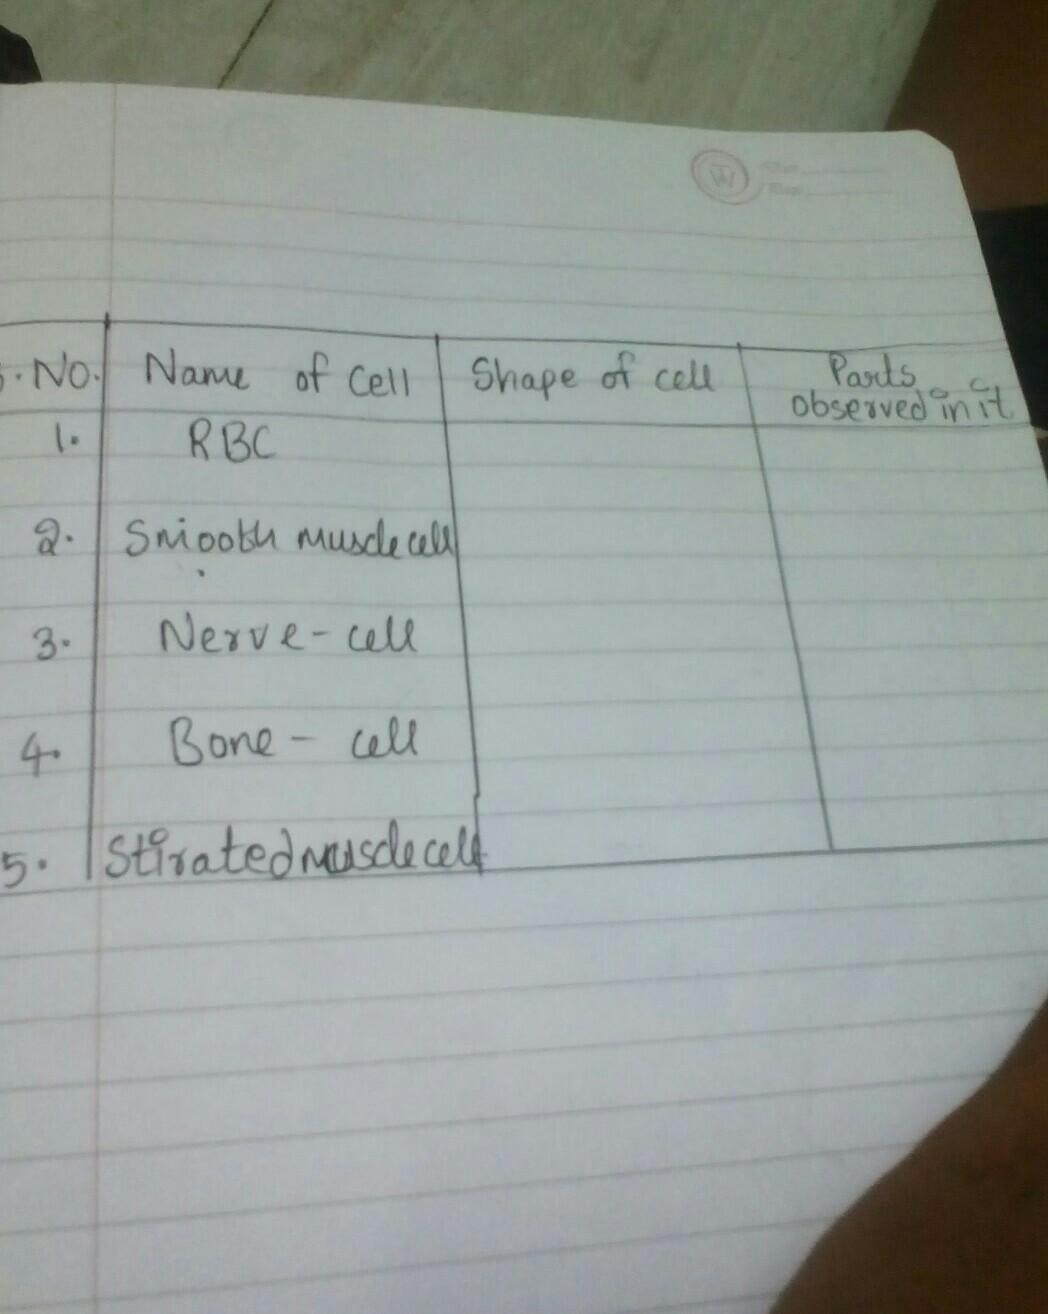 S.No. Name of Cell Shape of cell Parts observed in it
1. RBC
2. Smooth muscle cell
3. Nerve - cell
4. Bone - cell
5. Stirated muscle cell